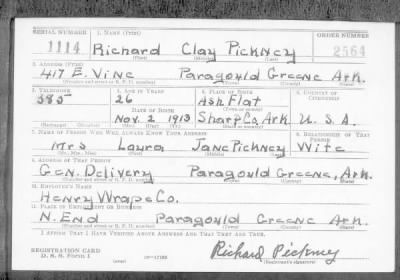 SERIAL NUMBER 1. NAME (Print) ORDER NUMBER
1114 Richard Clay Pickney 2564
(First) (Middle) (Last)
2. ADDRESS (Print)
417 E. Vine Paragould Greene Ark.
(Number and street or R. F. D. number) (Town) (County) (State)
3. TELEPHONE 4. AGE IN YEARS 5. PLACE OF BIRTH 6. COUNTRY OF CITIZENSHIP
385 26 Ash Flat
DATE OF BIRTH
Nov. 2 1913 Sharp Co. Ark. U. S. A.
(Exchange) (Number) (Mo.) (Day) (Yr.) (State or country)
7. NAME OF PERSON WHO WILL ALWAYS KNOW YOUR ADDRESS 8. RELATIONSHIP OF THAT PERSON
Mrs Laura Jane Pickney Wife
(Mr., Mrs., Miss) (First) (Middle) (Last)
9. ADDRESS OF THAT PERSON
Gen. Delivery Paragould Greene, Ark.
(Number and street or R. F. D. number) (Town) (County) (State)
10. EMPLOYER'S NAME
Henry Wrape Co.
11. PLACE OF EMPLOYMENT OR BUSINESS
N. End Paragould Greene Ark.
(Number and street or R. F. D. number) (Town) (County) (State)
I AFFIRM THAT I HAVE VERIFIED ABOVE ANSWERS AND THAT THEY ARE TRUE.
REGISTRATION CARD
D. S. S. Form 1 (over) Richard Pickney
(Registrant's signature)